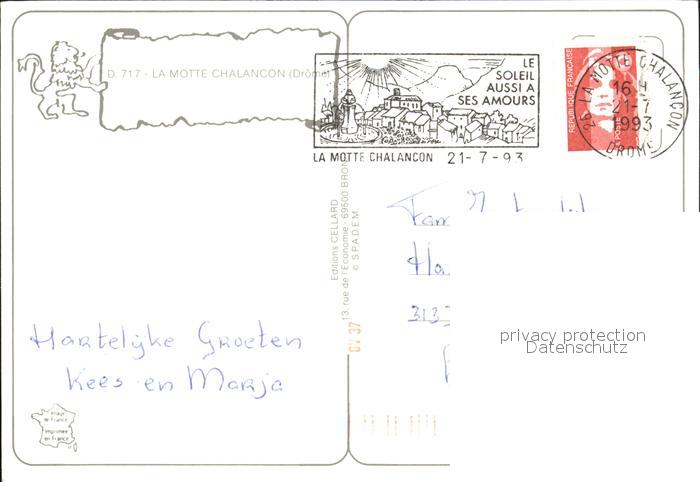 D. 717 - LA MOTTE CHALANCON (Drôme)
LE
SOLEIL
AUSSI A
SES AMOURS
LA MOTTE CHALANCON 21-7-93
RÉPUBLIQUE FRANÇAISE
LA POSTE
26 LA MOTTE CHALANCON
16 H
21-7
1993
DROME
Editions CELLARD
13, rue de l'Economie - 69500 BRON
© S.P.A.D.E.M.
Fam
Ha
313
privacy protection
Datenschutz
Hartelijke Groeten
Kees en Marja
OV 37
imprimée
en France